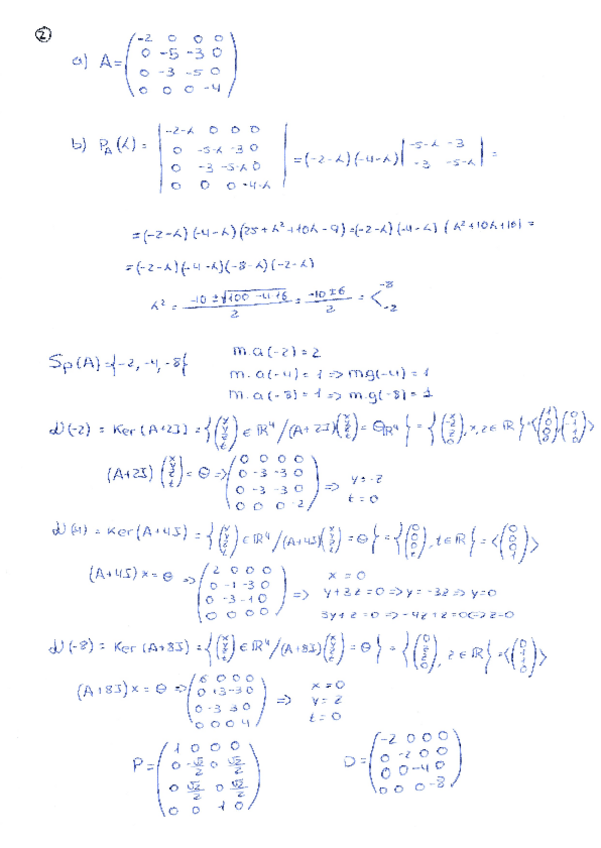 2
a) A = ( -2 0 0 0
0 -5 -3 0
0 -3 -5 0
0 0 0 -4 )
b) P_A(λ) = | -2-λ 0 0 0
0 -5-λ -3 0
0 -3 -5-λ 0
0 0 0 -4-λ | = (-2-λ)(-4-λ) | -5-λ -3
-3 -5-λ | =
= (-2-λ)(-4-λ)(25+λ²+10λ-9) = (-2-λ)(-4-λ)(λ²+10λ+16) =
= (-2-λ)(-4-λ)(-8-λ)(-2-λ)
= -10 ± = -10±6 / 2 = < -8
-2
Sp(A) = {-2, -4, -8}
m.a(-2) = 2
m.a(-4) = 1 => m.g(-4) = 1
m.a(-8) = 1 => m.g(-8) = 1
(-2) = Ker(A+2I) = { (x y z t) ∈ ℝ⁴ / (A+2I) (x y z t) = Θ_ℝ⁴ } = { (x -z z 0), x, z ∈ ℝ } = < (1 0 0 0), (0 -1 1 0) >
(A+2I) (x y z t) = Θ => ( 0 0 0 0
0 -3 -3 0
0 -3 -3 0
0 0 0 -2 ) => y = -z
t = 0
(-4) = Ker(A+4I) = { (x y z t) ∈ ℝ⁴ / (A+4I) (x y z t) = Θ } = { (0 0 0 t), t ∈ ℝ } = < (0 0 0 1) >
(A+4I)x = Θ => ( 2 0 0 0
0 -1 -3 0
0 -3 -1 0
0 0 0 0 ) => x = 0
y+3z = 0 => y = -3z => y = 0
3y+z = 0
(-8) = Ker(A+8I) = { (x y z t) ∈ ℝ⁴ / (A+8I) (x y z t) = Θ } = { (0 z z 0), z ∈ ℝ } = < (0 1 1 0) >
(A+8I)x = Θ => ( 6 0 0 0
0 +3 -3 0
0 -3 3 0
0 0 0 4 ) => x = 0
y = z
t = 0
P = ( 1 0 0 0
0 -√2/2 0 √2/2
0 √2/2 0 √2/2
0 0 1 0 )
D = ( -2 0 0 0
0 -2 0 0
0 0 -4 0
0 0 0 -8 )